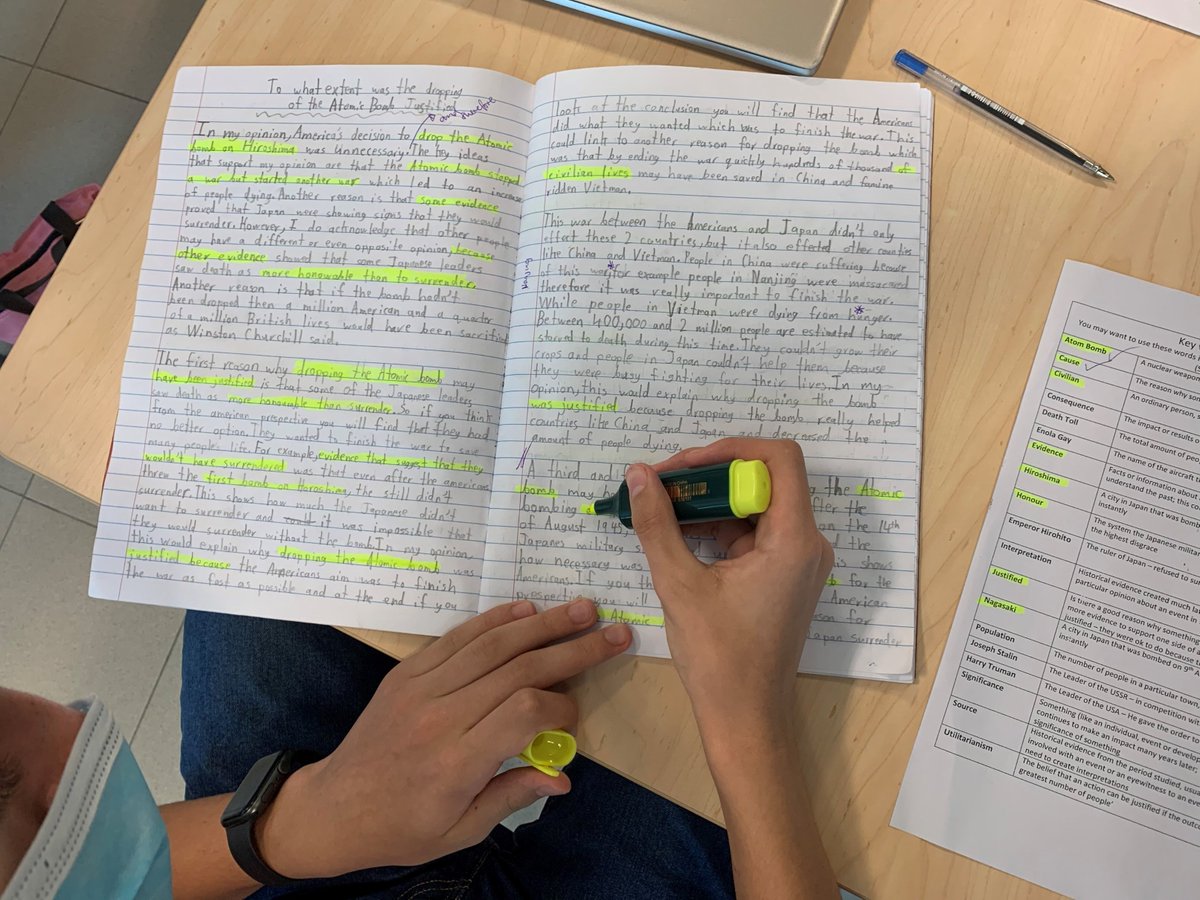 To what extent was the dropping
of the Atomic Bomb Justified
and therefore
In my opinion, America's decision to drop the Atomic
bomb on Hiroshima was unnecessary. The key ideas
that support my opinion are that the Atomic bomb stopped
a war but started another war which led to an increase
of people dying. Another reason is that some evidence
proved that Japan were showing signs that they would
surrender. However, I do acknowledge that other people
may have a different or even opposite opinion, because
other evidence showed that some Japanese leaders
saw death as more honourable than to surrender.
Another reason is that if the bomb hadn't
been dropped then a million American and a quarter
of a million British lives would have been sacrificed
as Winston Churchill said.
The first reason why dropping the Atomic bomb may
have been justified is that some of the Japanese leaders
saw death as more honourable than surrender. So if you think
from the american prespective you will find that they had
no better option. They wanted to finish the war to save
many people's life. For example, evidence that suggest that they
wouldn't have surrendered was that even after the americans
threw the first bomb on Hiroshima, the still didn't
surrender. This shows how much the Japanese didn't
want to surrender and it was impossible that
they would surrender without the bomb. In my opinion
this would explain why dropping the Atomic bomb was
justified because the Americans aim was to finish
the war as fast as possible and at the end, if you
look at the conclusion you will find that the Americans
did what they wanted which was to finish the war. This
could link to another reason for dropping the bomb which
was that by ending the war quickly hundreds of thousand of
civilian lives may have been saved in China and famine
ridden Vietman.
This war between the Americans and Japan didn't only
effect these 2 countries, but it also effected other counties
like China and Vietman. People in China were suffering because
of this war, for example people in Nanjing were massacared
therefore it was really important to finish the war.
While people in Vietman were dying from hunger.
Between 400,000 and 2 million people are estimated to have
starved to death during this time. They couldn't grow their
crops and people in Japan couldn't help them, because
they were busy fighting for their lives. In my
opinion, this would explain why dropping the bomb
was justified because dropping the bomb, really helped
countries like China and Japan and decreased the
amount of people dying.
A third and the Atomic
bomb may after the
bombing on the 14th
of August 1945, and the
Japanes military shows
how necessary was for the
Americans. If you American
prespective you will reason for
Atomic Japan surrender
Key
You may want to use these words
Atom Bomb A nuclear weapon
Cause The reason why
Civilian An ordinary person,
Consequence The impact or results
Death Toll The total amount of
Enola Gay The name of the aircraft
Evidence Facts or information about
understand the past; this
Hiroshima A city in Japan that was
instantly
Honour The system the Japanese
the highest disgrace
Emperor Hirohito The ruler of Japan – refused to
Interpretation Historical evidence created much
particular opinion about an event in
Justified Is there a good reason why something
more evidence to support one side of a
justified – they were ok to do because
Nagasaki A city in Japan that was bombed on 9th
instantly
Population The number of people in a particular town,
Joseph Stalin The Leader of the USSR – in competition
Harry Truman The Leader of the USA – He gave the order to
Significance Something (like an individual, event or
continues to make an impact many years later;
significance of something
Source Historical evidence from the period studied,
involved with an event or an eyewitness to an
need to create interpretations
Utilitarianism The belief that an action can be justified if the
greatest number of people'